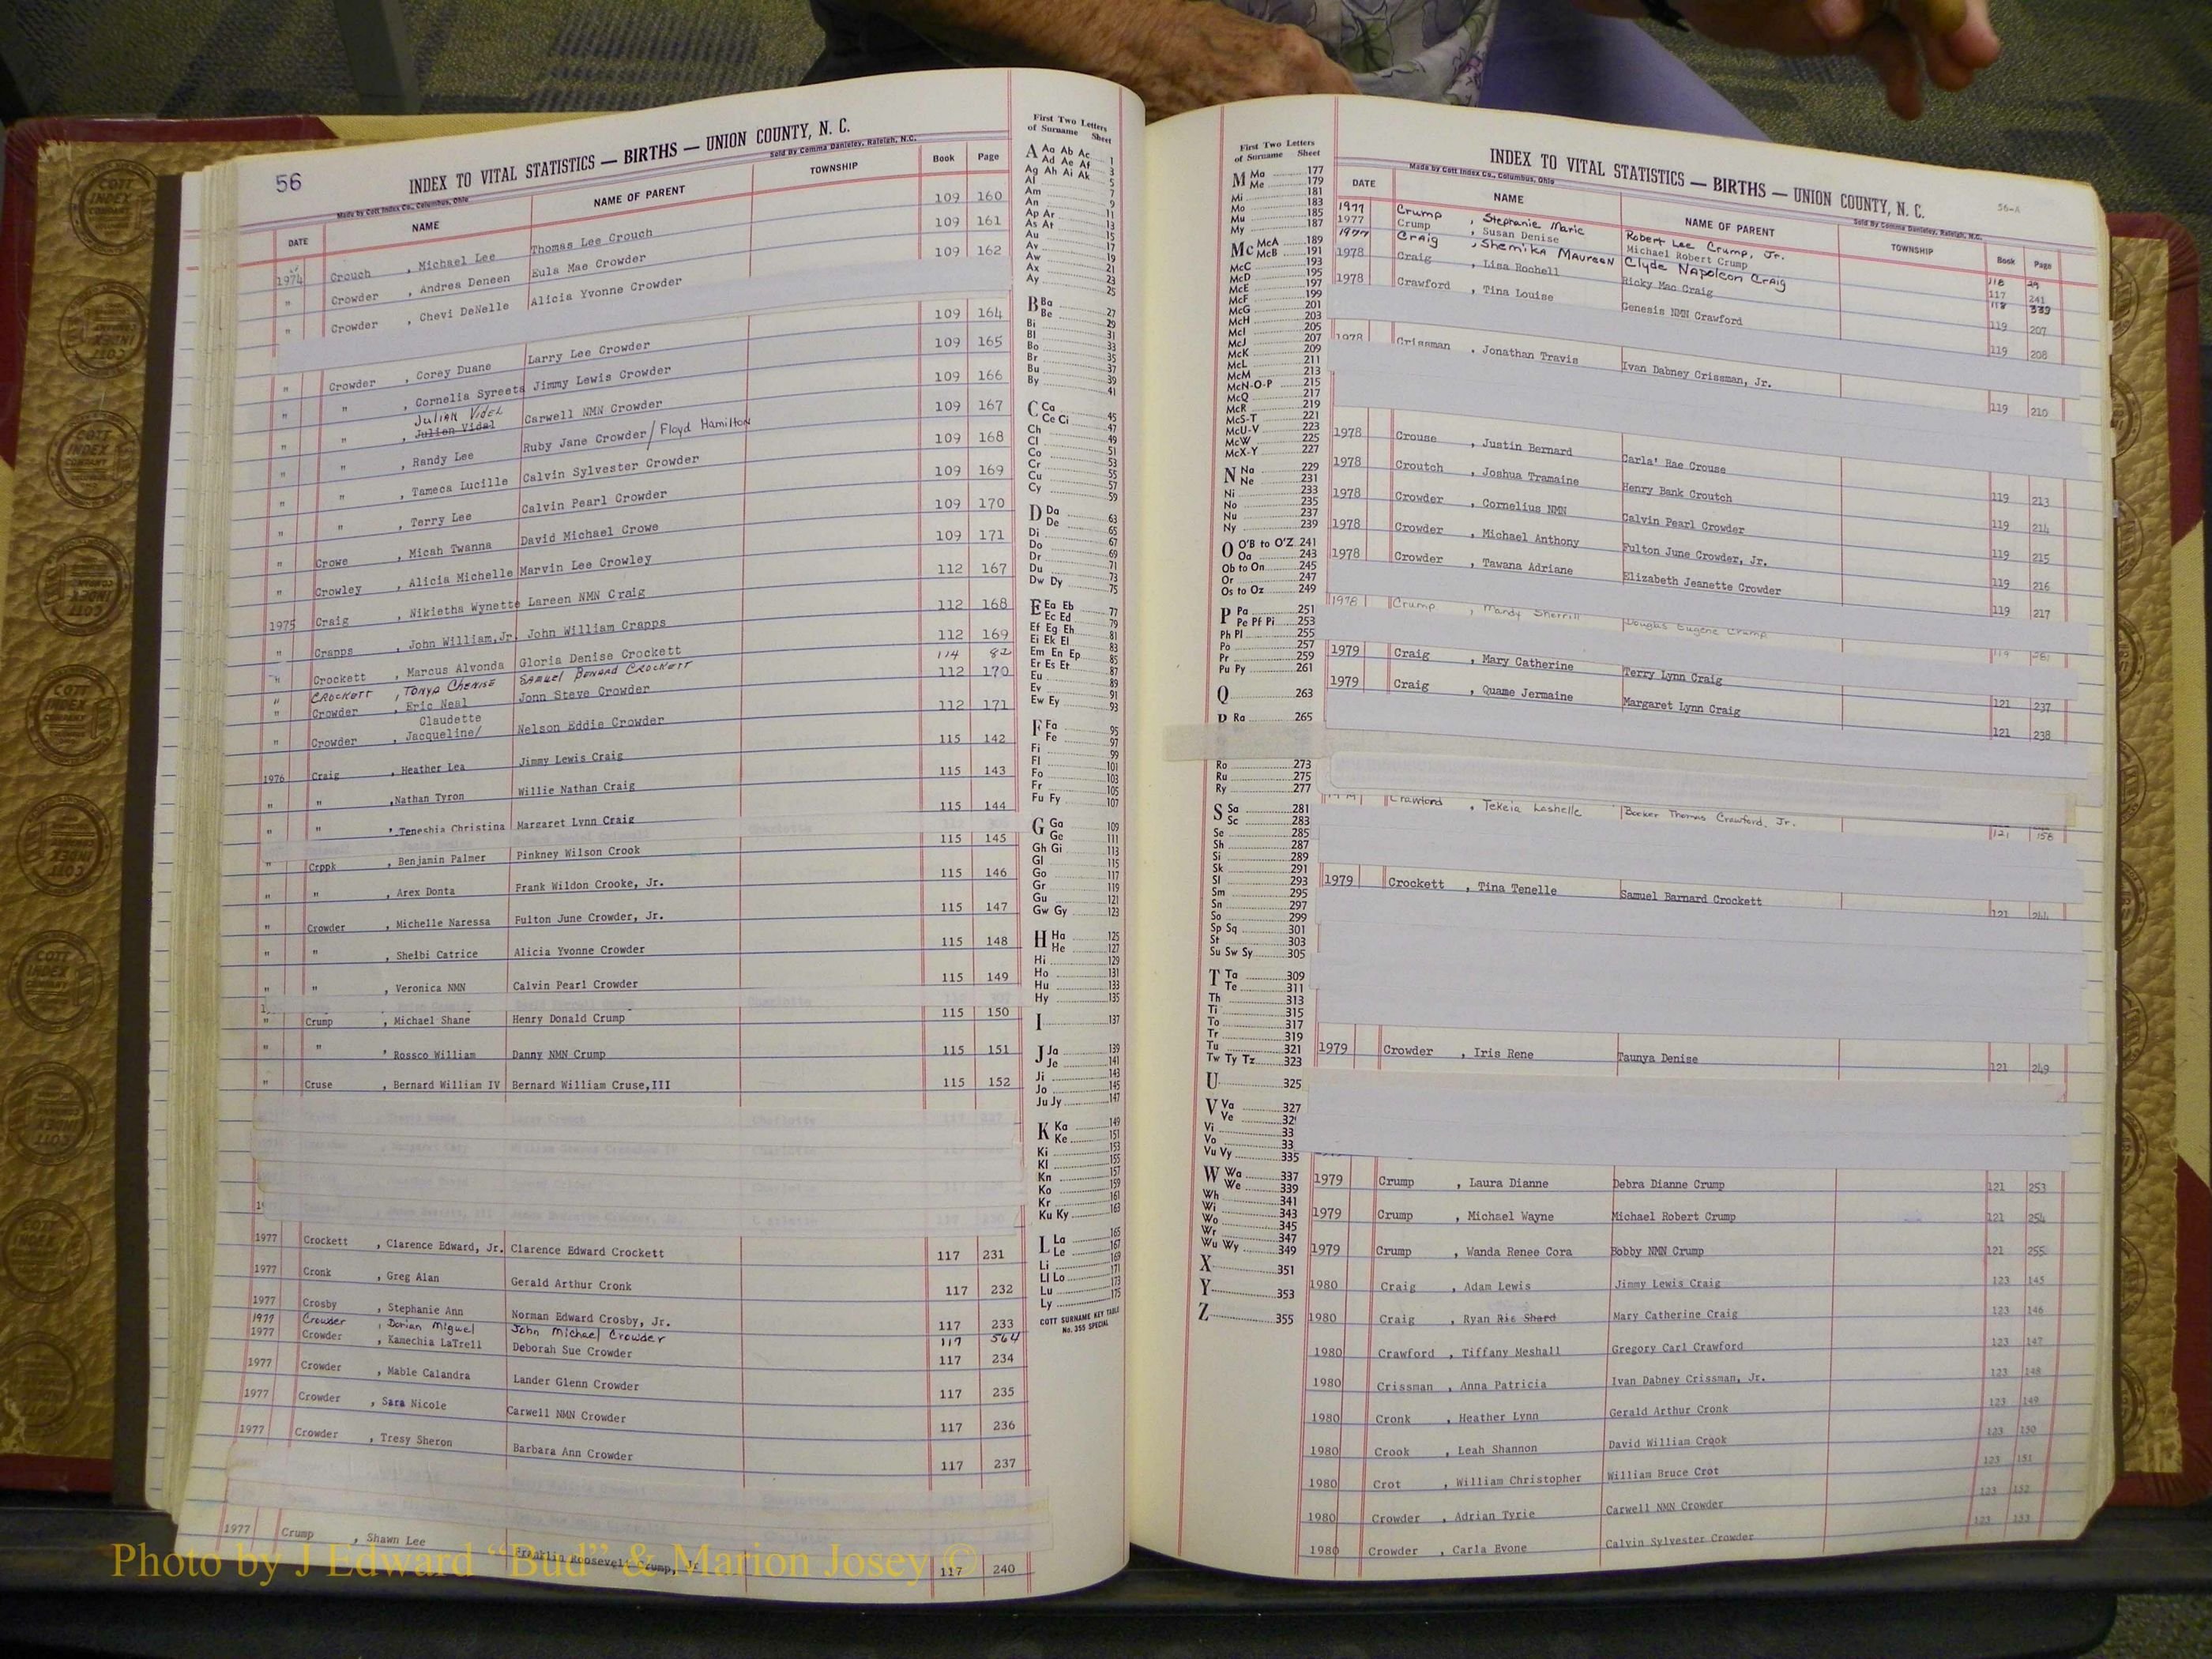 56
INDEX TO VITAL STATISTICS — BIRTHS — UNION COUNTY, N. C.
Made by Cott Index Co., Columbus, Ohio
Sold By Comma Danieley, Raleigh, N.C.
DATE NAME NAME OF PARENT TOWNSHIP Book Page
1974 Crouch , Michael Lee Thomas Lee Crouch 109 160
" Crowder , Andrea Deneen Eula Mae Crowder 109 161
" Crowder , Chevi DeNelle Alicia Yvonne Crowder 109 162
" Crowder , Corey Duane Larry Lee Crowder 109 164
" " , Cornelia Syreeta Jimmy Lewis Crowder 109 165
Julian Videl
" " , Julian Vidal Carwell NMN Crowder 109 166
" " , Randy Lee Ruby Jane Crowder / Floyd Hamilton 109 167
" " , Tameca Lucille Calvin Sylvester Crowder 109 168
" " , Terry Lee Calvin Pearl Crowder 109 169
" Crowe , Micah Twanna David Michael Crowe 109 170
" Crowley , Alicia Michelle Marvin Lee Crowley 109 171
1975 Craig , Nikietha Wynette Lareen NMN Craig 112 167
" Crapps , John William,Jr. John William Crapps 112 168
" Crockett , Marcus Alvonda Gloria Denise Crockett 112 169
" CROCKETT , Tonya Chenise Samuel Benard Crockett 114 82
" Crowder , Eric Neal Jonn Steve Crowder 112 170
Claudette
" Crowder , Jacqueline/ Nelson Eddie Crowder 112 171
1976 Craig , Heather Lea Jimmy Lewis Craig 115 142
" " ,Nathan Tyron Willie Nathan Craig 115 143
" " , Teneshia Christina Margaret Lynn Craig 115 144
" Crppk , Benjamin Palmer Pinkney Wilson Crook 115 145
" " , Arex Donta Frank Wildon Crooke, Jr. 115 146
" Crowder , Michelle Naressa Fulton June Crowder, Jr. 115 147
" " , Shelbi Catrice Alicia Yvonne Crowder 115 148
" " , Veronica NMN Calvin Pearl Crowder 115 149
" Crump , Michael Shane Henry Donald Crump 115 150
" " , Rossco William Danny NMN Crump 115 151
" Cruse , Bernard William IV Bernard William Cruse,III 115 152
1977 Crockett , Clarence Edward, Jr. Clarence Edward Crockett 117 231
1977 Cronk , Greg Alan Gerald Arthur Cronk 117 232
1977 Crosby , Stephanie Ann Norman Edward Crosby, Jr. 117 233
1977 Crowder , Dorian Miguel John Michael Crowder 117 564
1977 Crowder , Kamechia LaTrell Deborah Sue Crowder 117 234
1977 Crowder , Mable Calandra Lander Glenn Crowder 117 235
1977 Crowder , Sara Nicole Carwell NMN Crowder 117 236
1977 Crowder , Tresy Sheron Barbara Ann Crowder 117 237
1977 Crump , Shawn Lee Franklin Roosevelt Crump, Jr. 117 240
First Two Letters
of Surname Sheet
A Aa Ab Ac 1
Ad Ae Af 3
Ag Ah Ai Ak 5
Al 7
Am 9
An 11
Ap Ar 13
As At 15
Au 17
Av 19
Aw 21
Ax 23
Ay 25
B Ba 27
Be 29
Bi 31
Bl 33
Bo 35
Br 37
Bu 39
By 41
C Ca 45
Ce Ci 47
Ch 49
Cl 51
Co 53
Cr 55
Cu 57
Cy 59
D Da 63
De 65
Di 67
Do 69
Dr 71
Du 73
Dw Dy 75
E Ea Eb 77
Ec Ed 79
Ef Eg Eh 81
Ei Ek El 83
Em En Ep 85
Er Es Et 87
Eu 89
Ev 91
Ew Ey 93
F Fa 95
Fe 97
Fi 99
Fl 101
Fo 103
Fr 105
Fu Fy 107
G Ga 109
Ge 111
Gh Gi 113
Gl 115
Go 117
Gr 119
Gu 121
Gw Gy 123
H Ha 125
He 127
Hi 129
Ho 131
Hu 133
Hy 135
I 137
J Ja 139
Je 141
Ji 143
Jo 145
Ju Jy 147
K Ka 149
Ke 151
Ki 153
Kl 155
Kn 157
Ko 159
Kr 161
Ku Ky 163
L La 165
Le 167
Li 169
Ll Lo 171
Lu 173
Ly 175
COTT SURNAME KEY TABLE
No. 355 SPECIAL
First Two Letters
of Surname Sheet
M Ma 177
Me 179
Mi 181
Mo 183
Mu 185
My 187
Mc McA 189
McB 191
McC 193
McD 195
McE 197
McF 199
McG 201
McH 203
McI 205
McJ 207
McK 209
McL 211
McM 213
McN-O-P 215
McQ 217
McR 219
McS-T 221
McU-V 223
McW 225
McX-Y 227
N Na 229
Ne 231
Ni 233
No 235
Nu 237
Ny 239
O O'B to O'Z 241
Oa 243
Ob to On 245
Or 247
Os to Oz 249
P Pa 251
Pe Pf Pi 253
Ph Pl 255
Po 257
Pr 259
Pu Py 261
Q 263
R Ra 265
Ro 273
Ru 275
Ry 277
S Sa 281
Sc 283
Se 285
Sh 287
Si 289
Sk 291
Sl 293
Sm 295
Sn 297
So 299
Sp Sq 301
St 303
Su Sw Sy 305
T Ta 309
Te 311
Th 313
Ti 315
To 317
Tr 319
Tu 321
Tw Ty Tz 323
U 325
V Va 327
Ve 32
Vi 33
Vo 33
Vu Vy 335
W Wa 337
We 339
Wh 341
Wi 343
Wo 345
Wr 347
Wu Wy 349
X 351
Y 353
Z 355
INDEX TO VITAL STATISTICS — BIRTHS — UNION COUNTY, N. C.
56-A
Made by Cott Index Co., Columbus, Ohio
Sold By Comma Danieley, Raleigh, N.C.
DATE NAME NAME OF PARENT TOWNSHIP Book Page
1977 Crump , Stephanie Marie Robert Lee Crump, Jr. 118 29
1977 Crump , Susan Denise Michael Robert Crump 117 241
1977 Craig , Shemika Maureen Clyde Napoleon Craig 118 339
1978 Craig , Lisa Rochell Ricky Mac Craig 119 207
1978 Crawford , Tina Louise Genesis NMN Crawford 119 208
1978 Crissman , Jonathan Travis Ivan Dabney Crissman, Jr. 119 210
1978 Crouse , Justin Bernard Carla' Rae Crouse 119 213
1978 Croutch , Joshua Tramaine Henry Bank Croutch 119 214
1978 Crowder , Cornelius NMN Calvin Pearl Crowder 119 215
1978 Crowder , Michael Anthony Fulton June Crowder, Jr. 119 216
1978 Crowder , Tawana Adriane Elizabeth Jeanette Crowder 119 217
1978 Crump , Mandy Sherrill Douglas Eugene Crump
1979 Craig , Mary Catherine Terry Lynn Craig 121 237
1979 Craig , Quame Jermaine Margaret Lynn Craig 121 238
Crawford , Tekeia Lashelle Booker Thomas Crawford, Jr. 121 158
1979 Crockett , Tina Tenelle Samuel Barnard Crockett 121 244
1979 Crowder , Iris Rene Taunya Denise 121 249
1979 Crump , Laura Dianne Debra Dianne Crump 121 253
1979 Crump , Michael Wayne Michael Robert Crump 121 254
1979 Crump , Wanda Renee Cora Bobby NMN Crump 121 255
1980 Craig , Adam Lewis Jimmy Lewis Craig 123 145
1980 Craig , Ryan Ric Shard Mary Catherine Craig 123 146
1980 Crawford , Tiffany Meshall Gregory Carl Crawford 123 147
1980 Crissman , Anna Patricia Ivan Dabney Crissman, Jr. 123 148
1980 Cronk , Heather Lynn Gerald Arthur Cronk 123 149
1980 Crook , Leah Shannon David William Crook 123 150
1980 Crot , William Christopher William Bruce Crot 123 151
1980 Crowder , Adrian Tyrie Carwell NMN Crowder 123 152
1980 Crowder , Carla Evone Calvin Sylvester Crowder 123 153
Photo by J Edward “Bud” & Marion Josey ©